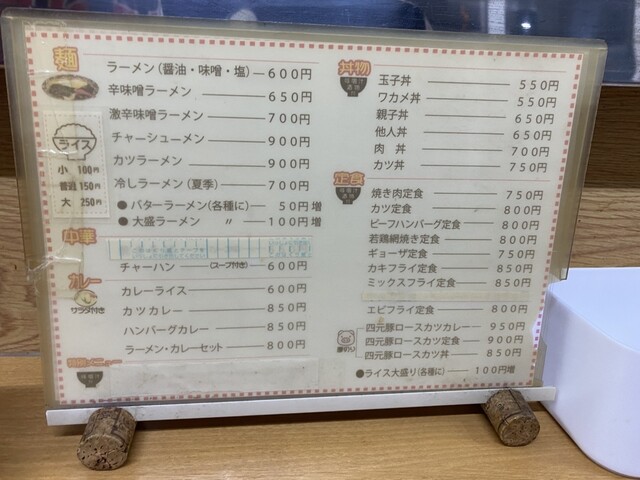 麺
ラーメン(醤油・味噌・塩)―600円
辛味噌ラーメン―650円
激辛味噌ラーメン―700円
チャーシューメン―900円
カツラーメン―900円
冷しラーメン(夏季)―700円
●バターラーメン(各種に)―50円増
●大盛ラーメン 〃 ―100円増
ライス
小 100円
普通 150円
大 250円
中華
チャーハン―(スープ付き)―600円
カレー
サラダ付き
カレーライス―600円
カツカレー―850円
ハンバーグカレー―850円
ラーメン・カレーセット―800円
丼物
味噌汁
漬物
玉子丼―550円
ワカメ丼―550円
親子丼―650円
他人丼―650円
肉丼―700円
カツ丼―750円
定食
味噌汁
漬物
焼き肉定食―750円
カツ定食―800円
ビーフハンバーグ定食―800円
若鶏網焼き定食―800円
ギョーザ定食―750円
カキフライ定食―800円
ミックスフライ定食―850円
エビフライ定食―800円
厚切り
四元豚ロースカツカレー―950円
四元豚ロースカツ定食―900円
四元豚ロースカツ丼―850円
●ライス大盛り(各種に)―100円増